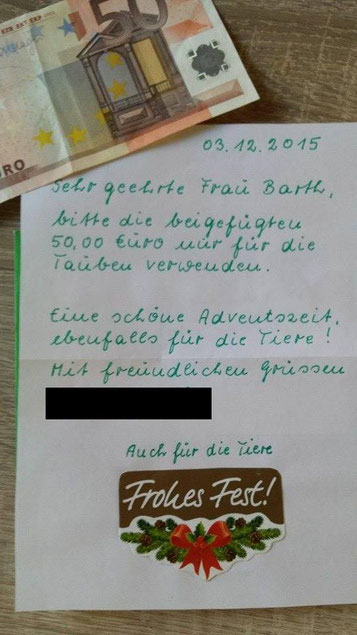 50
EURO
03.12.2015
Sehr geehrte Frau Barth,
bitte die beigefügten
50,00 Euro nur für die
Tauben verwenden.
Eine schöne Adventszeit,
ebenfalls für die Tiere!
Mit freundlichen Grüssen
Auch für die Tiere
Frohes Fest!